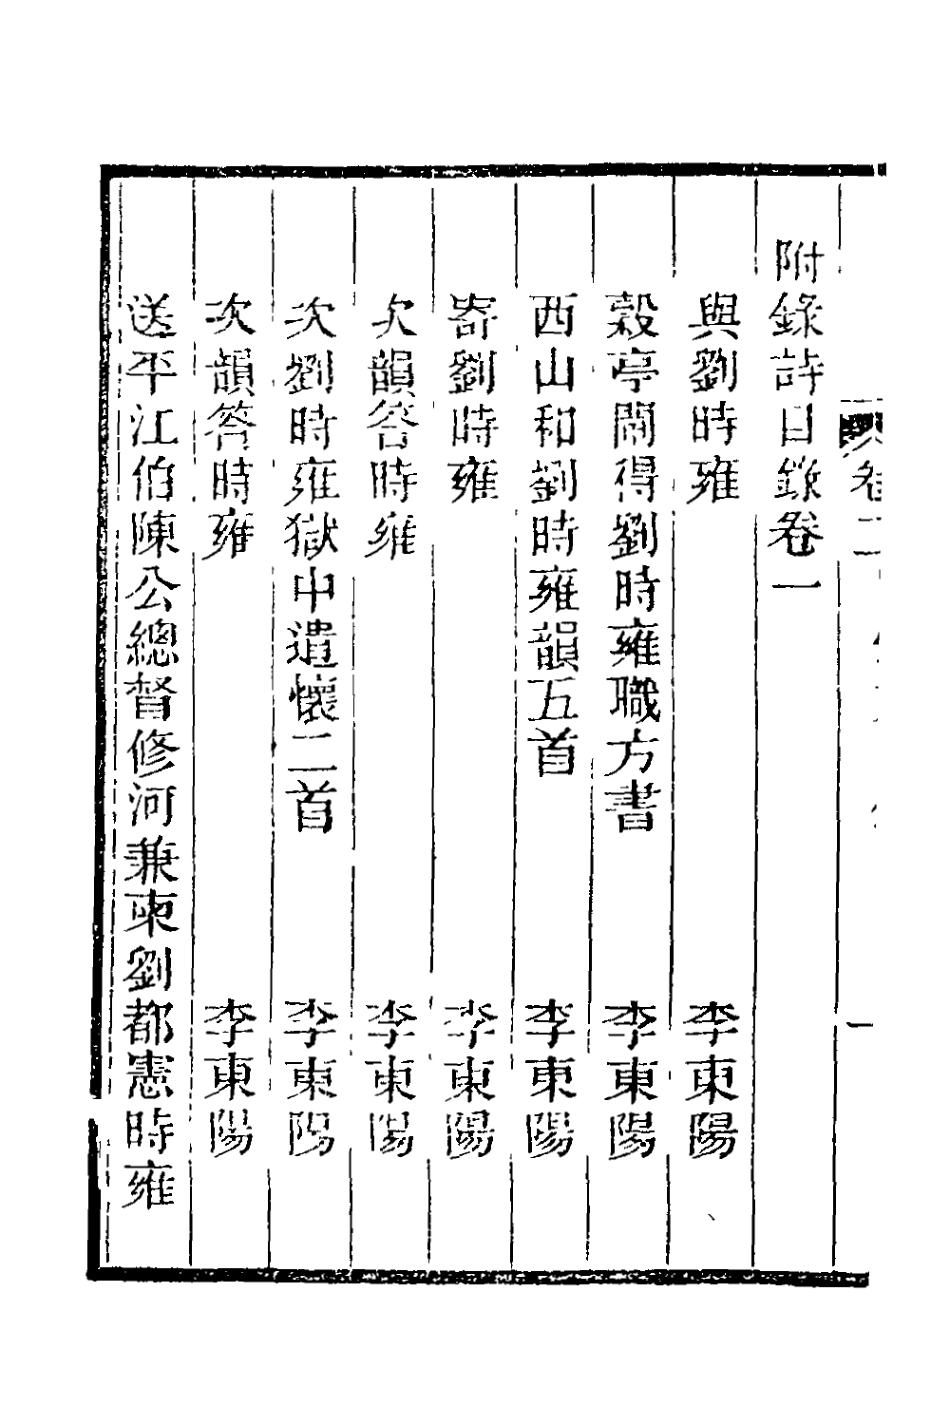 卷二
一
附錄詩目錄卷一
與劉時雍
李東陽
穀亭閘得劉時雍職方書
李東陽
西山和劉時雍韻五首
李東陽
寄劉時雍
李東陽
次韻答時雍
李東陽
次劉時雍獄中遣懷二首
李東陽
次韻答時雍
李東陽
送平江伯陳公總督修河兼柬劉都憲時雍